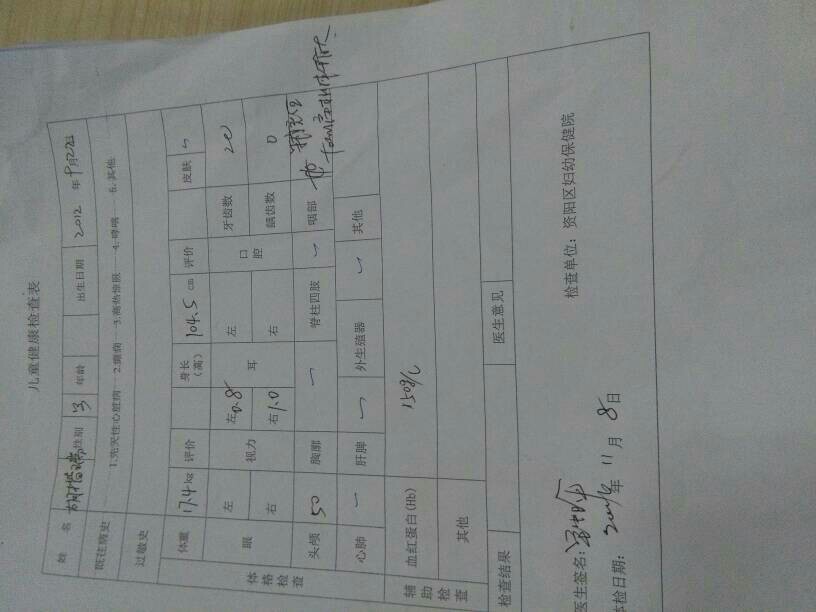 儿童健康检查表
姓 名 性别 3 年龄 出生日期 2012 年 9月22日
既往病史 1.先天性心脏病 2.癫痫 3.高热惊厥 4.哮喘 6.其他
过敏史
体重 17.4 kg 评价 身长(高) 104.5 cm 评价 皮肤
体格检查
眼 左 视力 左0.8 耳 左 口腔 牙齿数 20
右 右1.0 右 龋齿数 0
头颅 50 胸廓 脊柱四肢 咽部
心肺 肝脾 外生殖器 其他
辅助检查
血红蛋白(Hb) 150g/L
其他
检查结果 医生意见
医生签名:
检查单位: 资阳区妇幼保健院
体检日期: 2016年 11 月 8 日